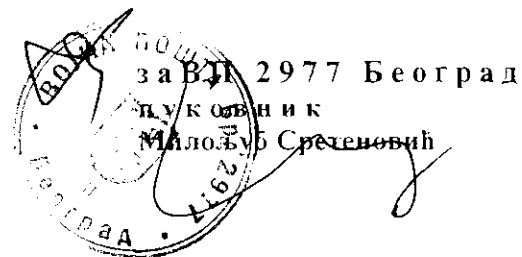 за ВП 2977 Београд
пуковник
Милољуб Сретеновић
ВОЈНА ПОШТА бр. 2977
• Београд •